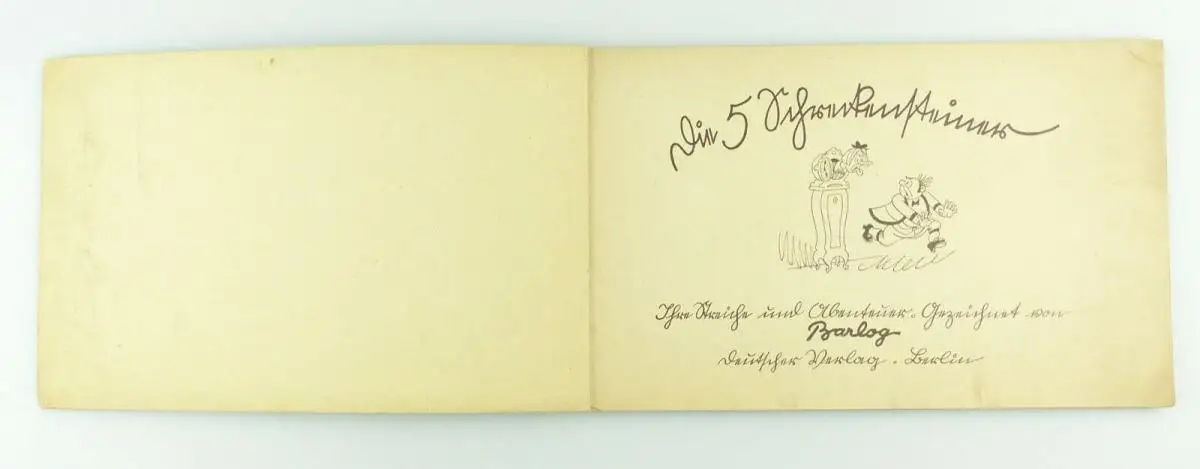 Die 5 Schreckensteiner
Ihre Streiche und Abenteuer. Gezeichnet von
Barlog
Deutscher Verlag. Berlin